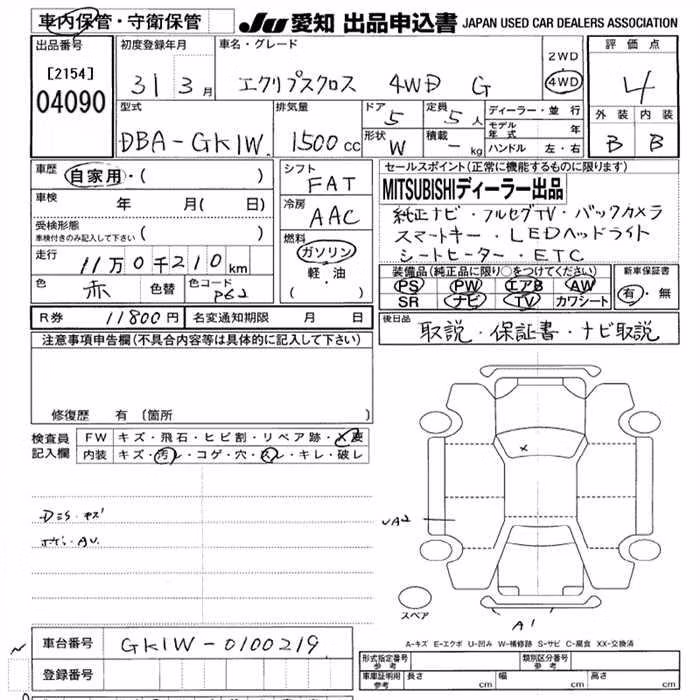 車内保管・守衛保管
JU 愛知 出品申込書 JAPAN USED CAR DEALERS ASSOCIATION
出品番号
[2154]
04090
初度登録年月
31年 3月
車名・グレード
エクリプスクロス 4WD G
2WD
・
4WD
評価点
4
外装 内装
B B
型式
DBA-GK1W
排気量
1500cc
ドア
5
形状
W
定員
5人
積載
- kg
ディーラー・並 行
モデル
年 式 年
ハンドル 左・右
車歴
自家用・( )
車検 年 月( 日)
受検形態
車検付きのみ記入して下さい ( )
走行
11万0千210km
色 赤 色替 色コード P62
シフト
FAT
冷房
AAC
燃料
ガソリン
軽・油
( )
セールスポイント(正常に機能するものに限ります)
MITSUBISHIディーラー出品
純正ナビ・フルセグTV・バックカメラ
スマートキー・LEDヘッドライト
シートヒーター・ETC
装備品(純正品に限り○をつけてください)
PS PW エアB AW
SR ナビ TV カワシート
新車保証書
有・無
R券 11800円 名変通知期限 月 日
後日品
取説・保証書・ナビ取説
注意事項申告欄(不具合内容等は具体的に記入して下さい)
修復歴 有(箇所 )
検査員
記入欄
FW キズ・飛石・ヒビ割・リペア跡・X
内装 キズ・汚レ・コゲ・穴・スレ・キレ・破レ
キズ
AU
X
UA2
スペア
A1
A-キズ E-エクボ U-凹み W-補修跡 S-サビ C-腐食 XX-交換済
車台番号 GK1W-0100219
登録番号
形式指定番号
参考
類別区分番号
参考
車庫証明用
参考
長さ cm 幅 cm 高さ cm